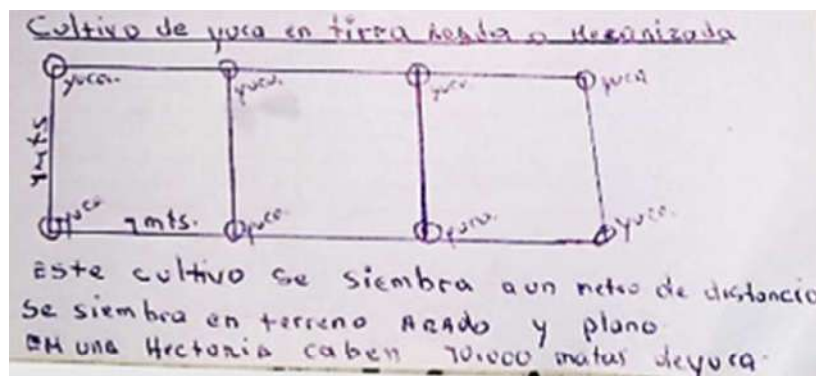 Cultivo de yuca en tierra Arada o Mecanizada
yuca. yuca. yuca. yuca
1 mts
yuca 1 mts. yuca. yuca. yuca.
Este cultivo se siembra a un metro de distancia
se siembra en terreno ARADO y plano
EM una Hectaria caben 10.000 matas de yuca.